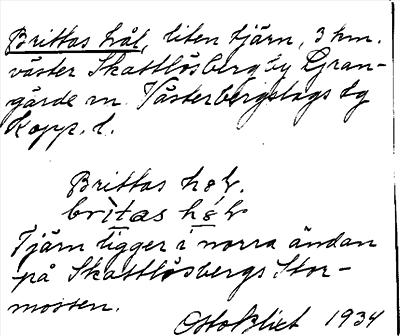 Brittas hål, liten tjärn, 3 km.
väster Skattlösberg by Gran-
gärde sn. Västerbergslags dg
Kopp. l.
Brittas hol.
britas hól
Tjärn ligger i norra ändan
på Skattlösbergs Stor-
mossen.
Otto Blixt 1934